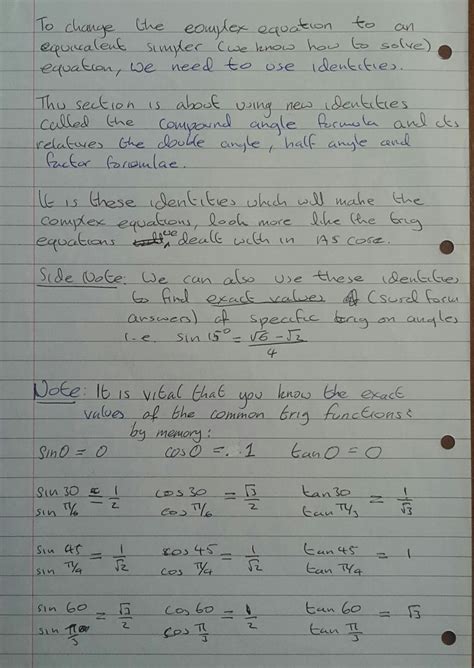 To change the complex equation to an
equivalent simpler (we know how to solve)
equation, we need to use identities.
This section is about using new identities
called the compound angle formula and its
relatives the double angle, half angle and
factor formulae.
It is these identities which will make the
complex equations, look more like the trig
equations we dealt with in AS core.
Side Note: We can also use these identities
to find exact values (surd form
answers) of specific trig on angles
i.e. sin 15° = (√6 - √2)/4
Note: It is vital that you know the exact
values of the common trig functions
by memory:
sin0 = 0 cos0 = 1 tan0 = 0
sin 30 = 1/2 cos 30 = √3/2 tan 30 = 1/√3
sin π/6 cos π/6 tan π/3
sin 45 = 1/√2 cos 45 = 1/√2 tan 45 = 1
sin π/4 cos π/4 tan π/4
sin 60 = √3/2 cos 60 = 1/2 tan 60 = √3
sin π/3 cos π/3 tan π/3